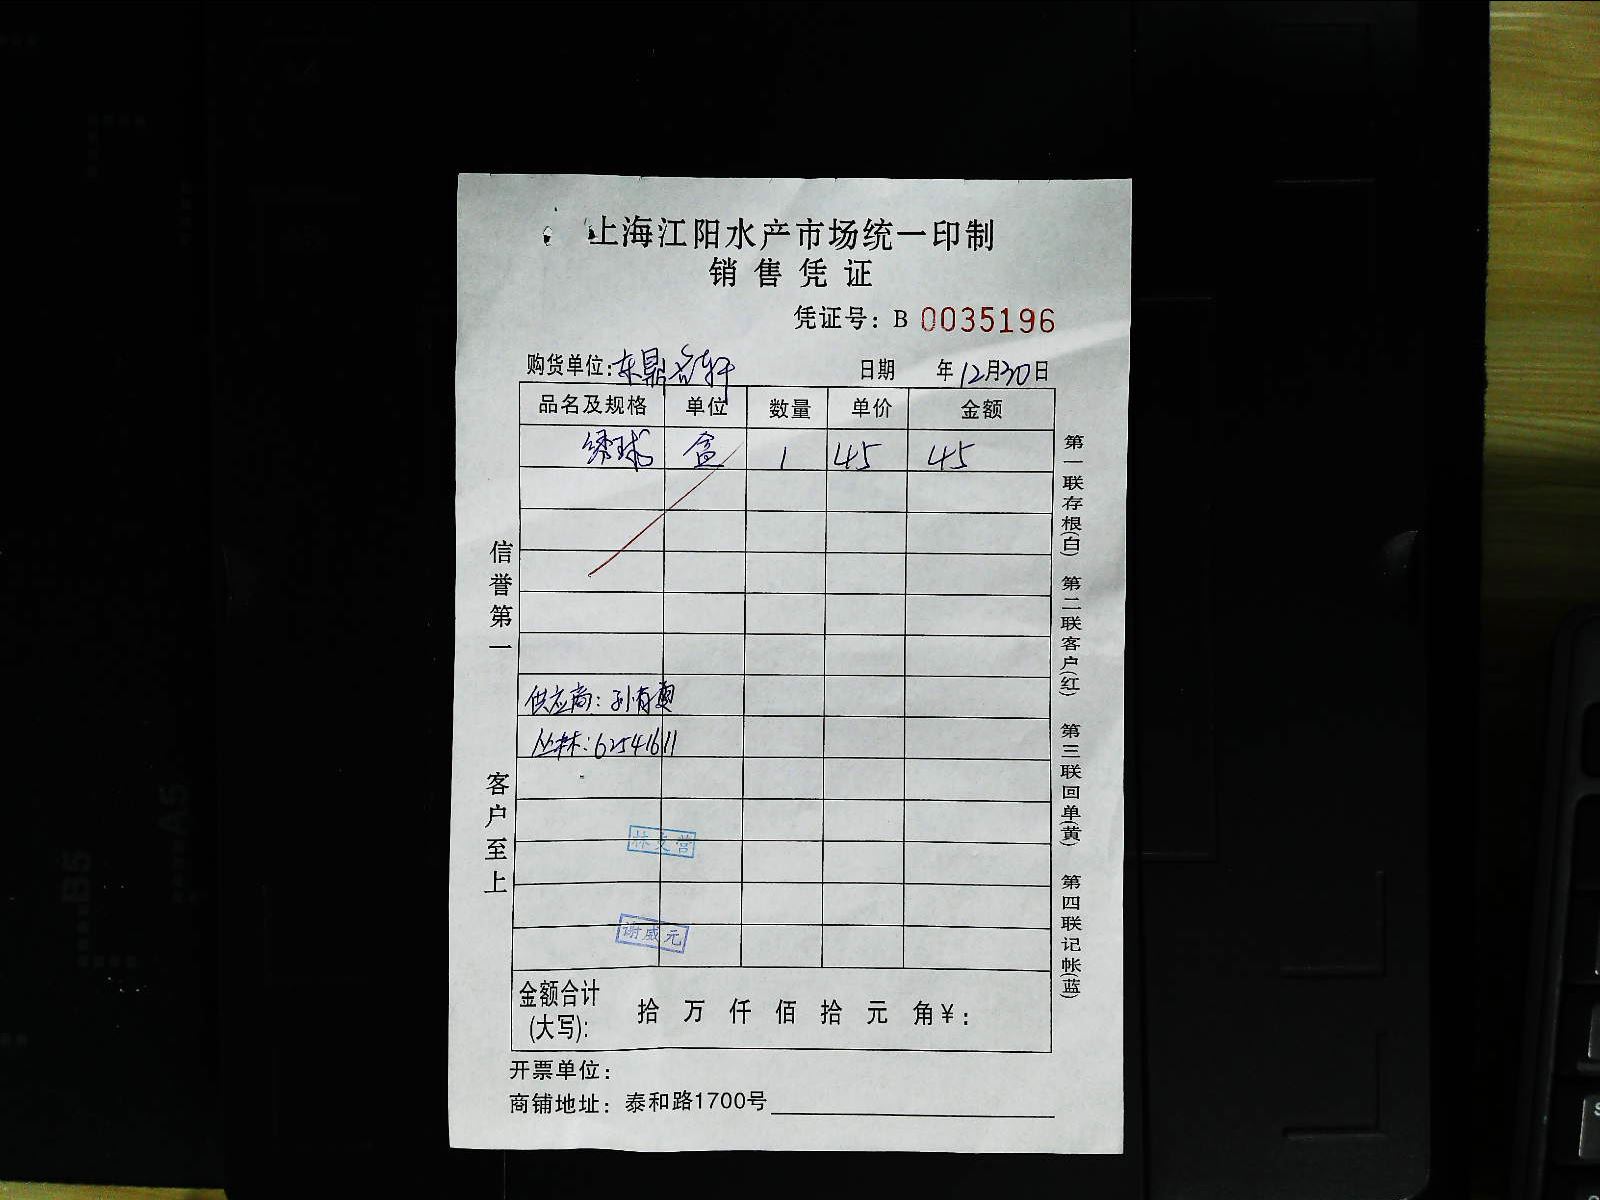 上海江阳水产市场统一印制
销售凭证
凭证号：B 0035196
购货单位：东鼎名轩 日期 年12月30日
品名及规格 单位 数量 单价 金额
绣球 盒 1 45 45
供应商：孙有勇
丛林：62541611
林文营
谢威元
金额合计(大写)： 拾 万 仟 佰 拾 元 角￥：
开票单位：
商铺地址：泰和路1700号
信誉第一
客户至上
第一联存根(白) 第二联客户(红) 第三联回单(黄) 第四联记帐(蓝)
B5
A5